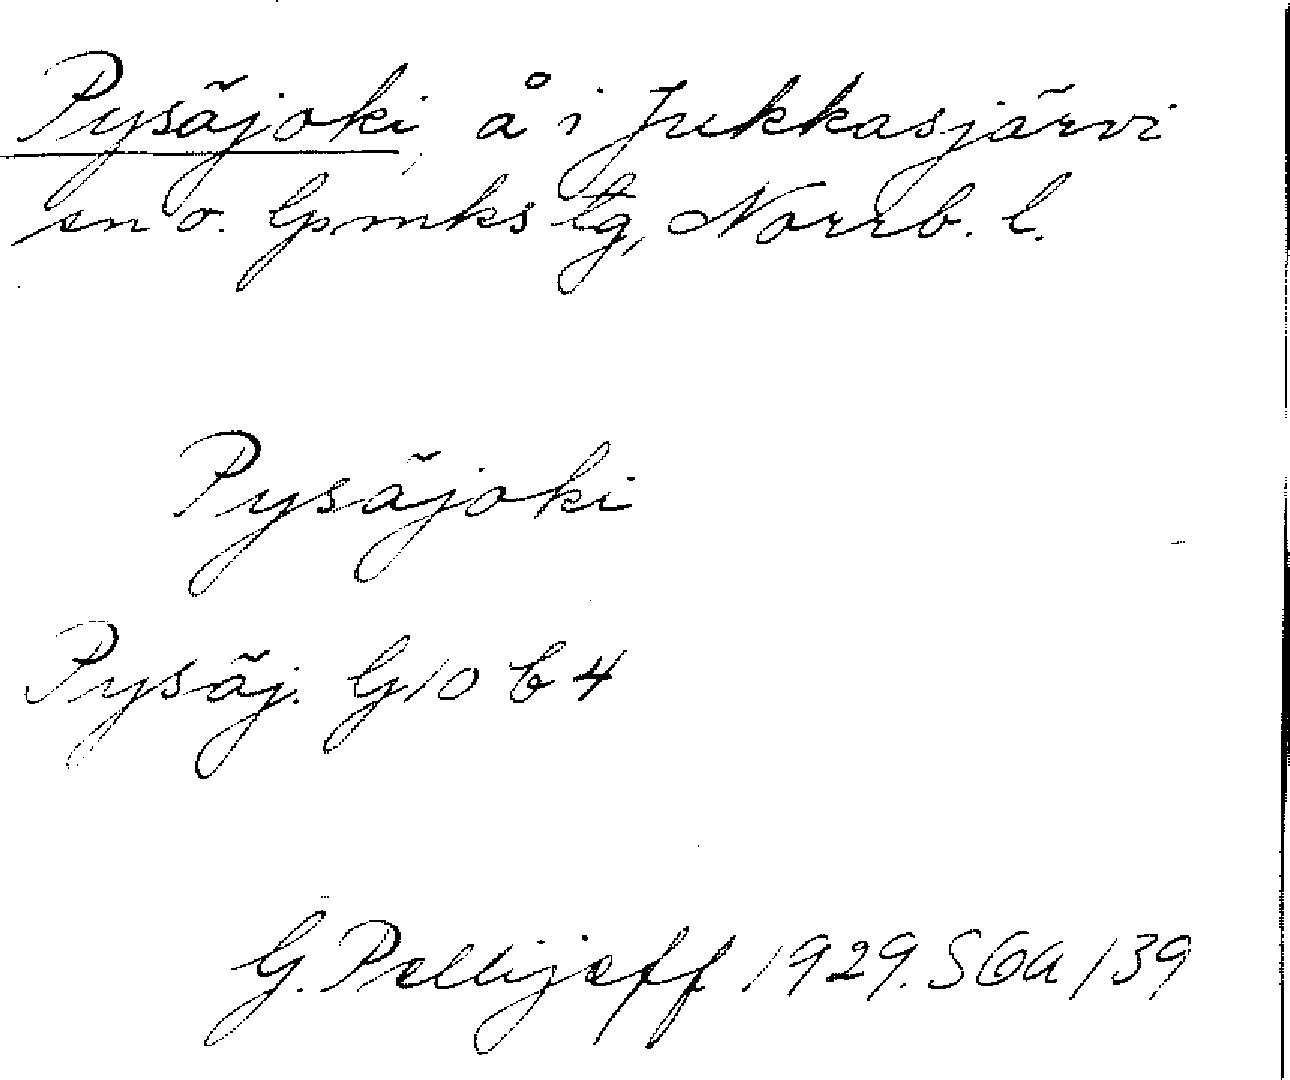 Pysäjoki, å i Jukkasjärvi
sn o. Gpmks tg, Norrb. l.
Pysäjoki
Pysäj. G10 b4
G. Pellijeff 1929. SOA 139